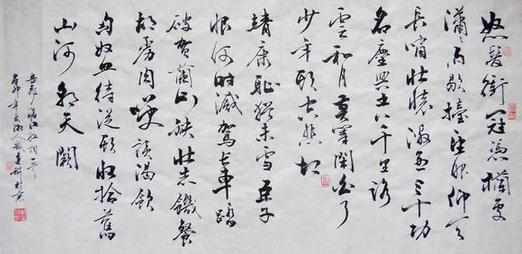 怒髮衝冠憑欄處
瀟瀟雨歇擡望眼仰天
長嘯壯懷激烈三十功
名塵與土八千里路
雲和月莫等閒白了
少年頭空悲切
靖康恥猶未雪臣子
恨何時滅駕長車踏
破賀蘭山缺壯志饑餐
胡虜肉笑談渴飲
匈奴血待從頭收拾舊
山河朝天闕
岳飛滿江紅詞一首